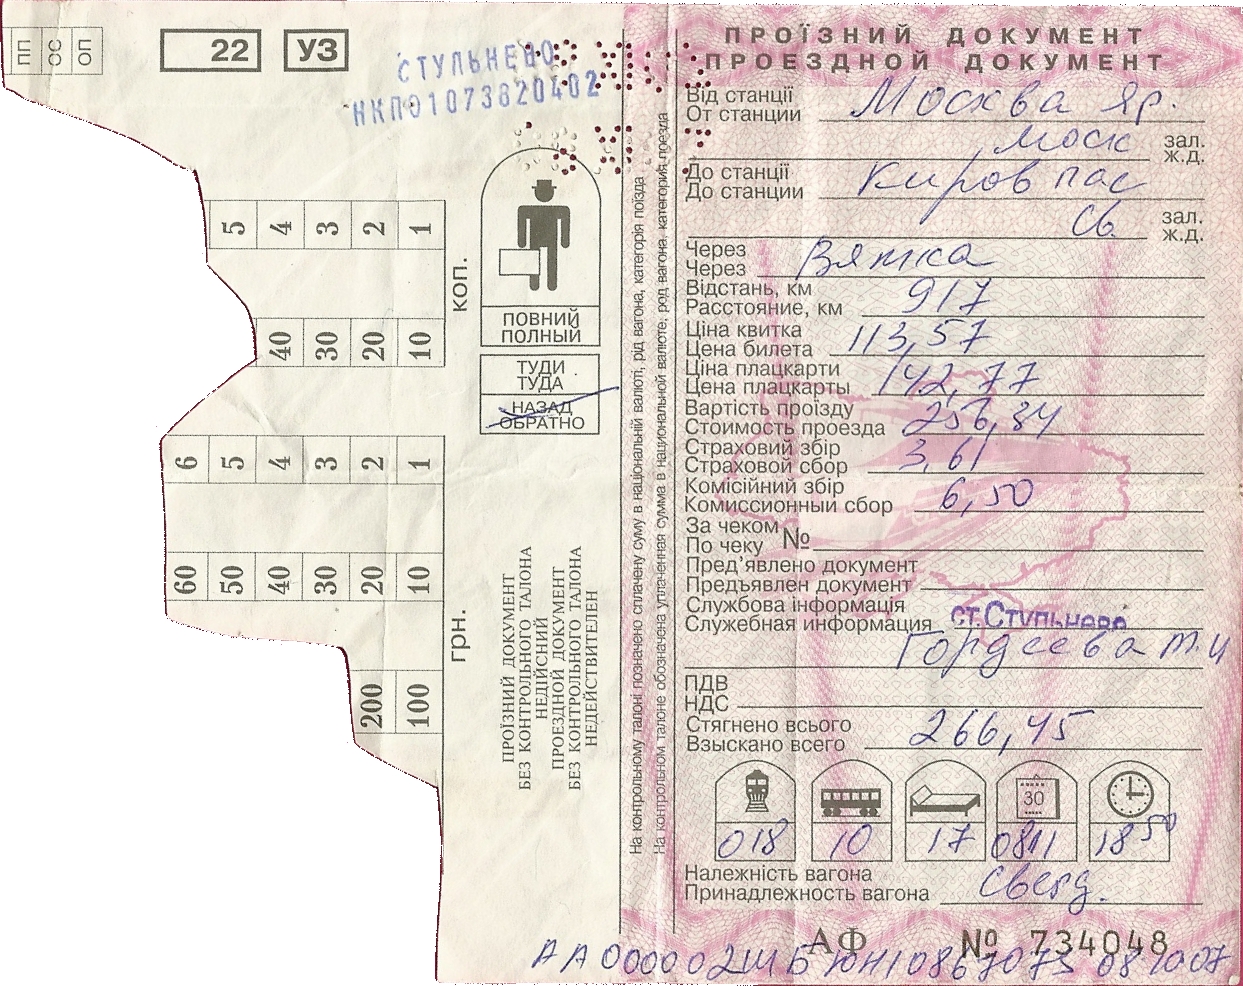 ПП
СС
ОП
22
УЗ
СТУЛЬНЕВО
НКП01073820402
5 4 3 2 1
40 30 20 10
коп.
6 5 4 3 2 1
60 50 40 30 20 10
200 100
грн.
ПОВНИЙ
ПОЛНЫЙ
ТУДИ
ТУДА
НАЗАД
ОБРАТНО
ПРОЇЗНИЙ ДОКУМЕНТ
БЕЗ КОНТРОЛЬНОГО ТАЛОНА
НЕДІЙСНИЙ
ПРОЕЗДНОЙ ДОКУМЕНТ
БЕЗ КОНТРОЛЬНОГО ТАЛОНА
НЕДЕЙСТВИТЕЛЕН
На контрольному талоні позначено сплачену суму в національній валюті, рід вагона, категорія поїзда
На контрольном талоне обозначена уплаченная сумма в национальной валюте, род вагона, категория поезда
ПРОЇЗНИЙ ДОКУМЕНТ
ПРОЕЗДНОЙ ДОКУМЕНТ
Від станції
От станции Москва Яр.
моск зал.
ж.д.
До станції
До станции Киров пас
Св зал.
ж.д.
Через
Через Вятка
Відстань, км
Расстояние, км 917
Ціна квитка
Цена билета 113,57
Ціна плацкарти
Цена плацкарты 142,77
Вартість проїзду
Стоимость проезда 256,34
Страховий збір
Страховой сбор 3,61
Комісійний збір
Комиссионный сбор 6,50
За чеком
По чеку №
Пред'явлено документ
Предъявлен документ
Службова інформація
Служебная информация ст.Стульнево
Гордеева Т.И
ПДВ
НДС
Стягнено всього
Взыскано всего 266,45
30
018 10 17 0811 18 50
Належність вагона
Принадлежность вагона Сверд.
АФ № 734048
АА000002ШБ ЮН10867073 081007